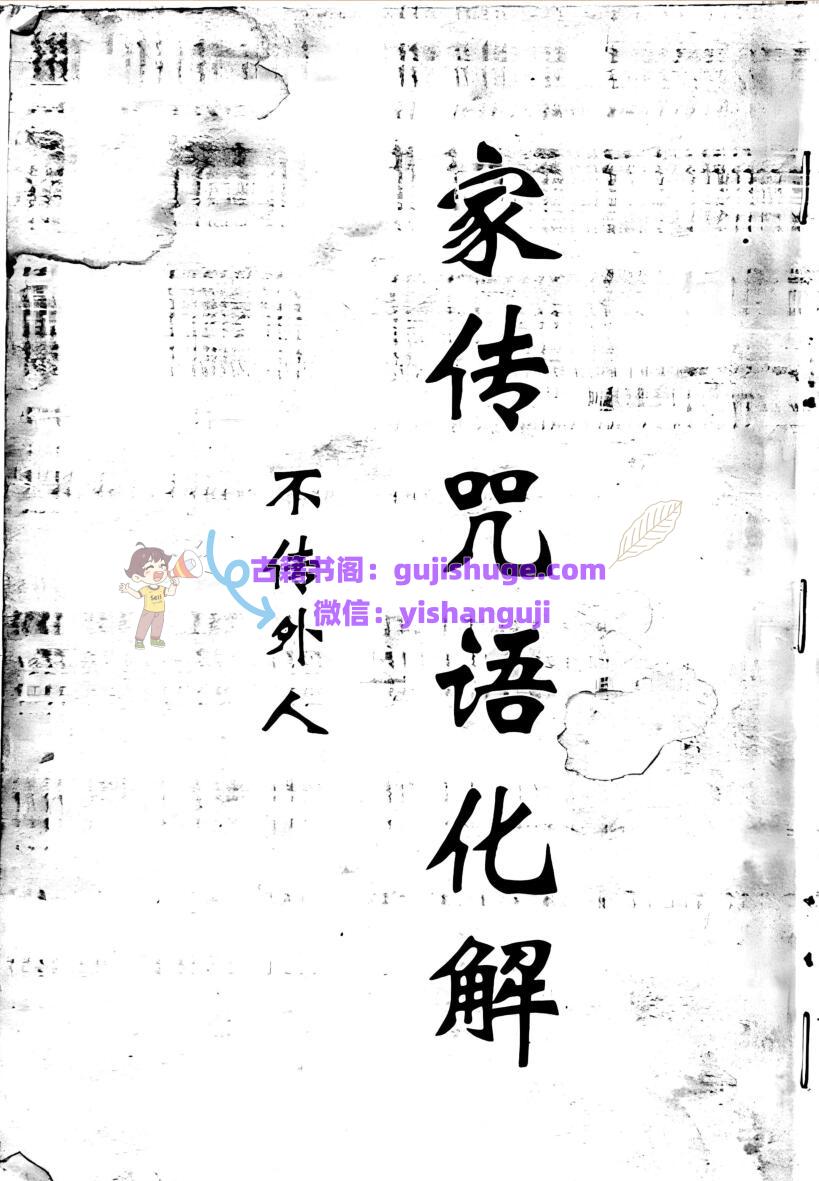 家传咒语化解
不传外人
古籍书阁：gujishuge.com
微信：yishanguji
Sell